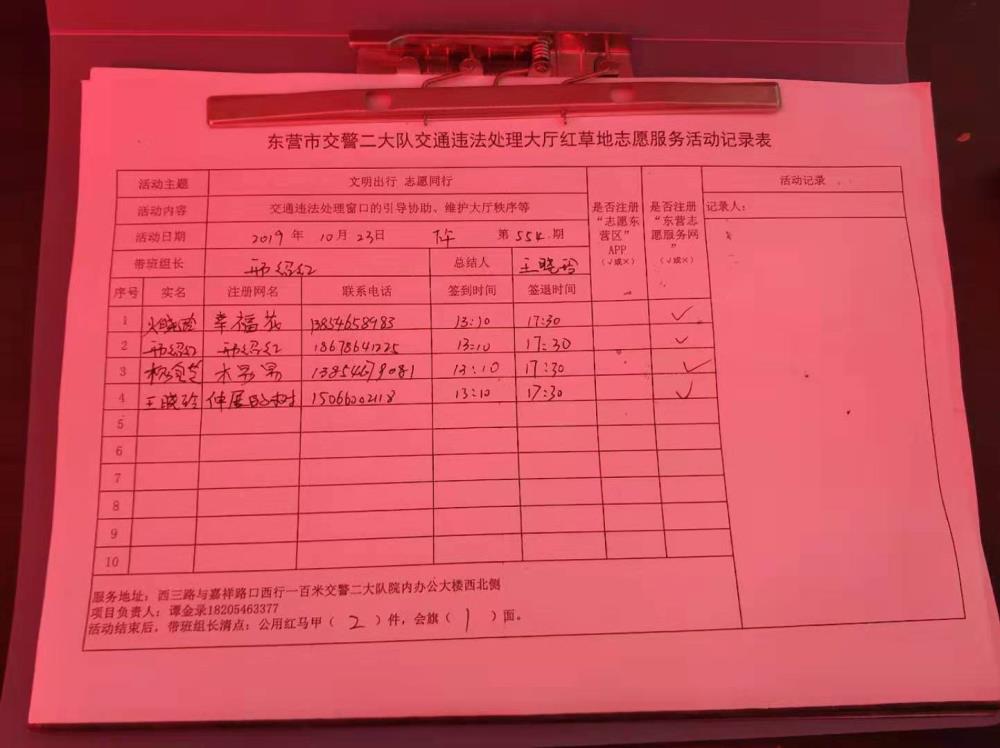 东营市交警二大队交通违法处理大厅红草地志愿服务活动记录表
活动主题 文明出行 志愿同行
活动内容 交通违法处理窗口的引导协助、维护大厅秩序等
活动日期 2019 年 10 月 23 日 下午 第 554 期
带班组长 总结人 王晓玲
是否注册“志愿东营区”APP（√或×）
是否注册“东营志愿服务网”（√或×）
活动记录
记录人：
序号 实名 注册网名 联系电话 签到时间 签退时间
1 幸福花 13854658983 13:10 17:30 √
2 18678641225 13:10 17:30 √
3 木男男 13854679081 13:10 17:30 √
4 王晓玲 伸展的树 15066002118 13:10 17:30 √
5
6
7
8
9
10
服务地址：西三路与嘉祥路口西行一百米交警二大队院内办公大楼西北侧
项目负责人：谭金录18205463377
活动结束后，带班组长清点：公用红马甲（ 2 ）件，会旗（ 1 ）面。